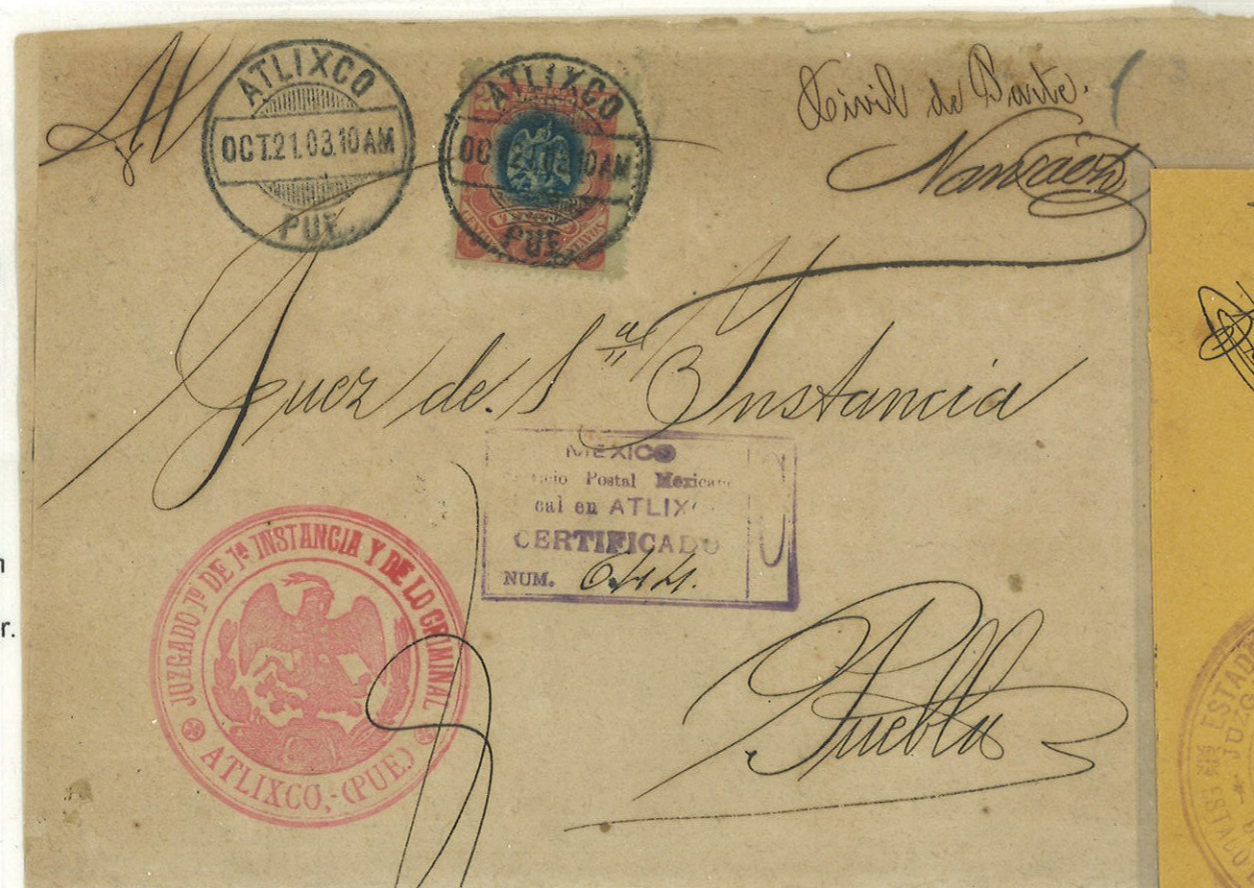 Al
ATLIXCO
OCT.21.03.10AM
PUE.
ATLIXCO
10AM
PUE.
CENTAVOS
Civil de Parte.
Juez de 1ª Instancia
MEXICO
Servicio Postal Mexicano
cal en ATLIXCO
CERTIFICADO
NUM. 644.
JUZGADO 1º DE 1ª INSTANCIA Y DE LO CRIMINAL
ATLIXCO,-(PUE.)
Puebla
n
r.
ESTADO
JUZG